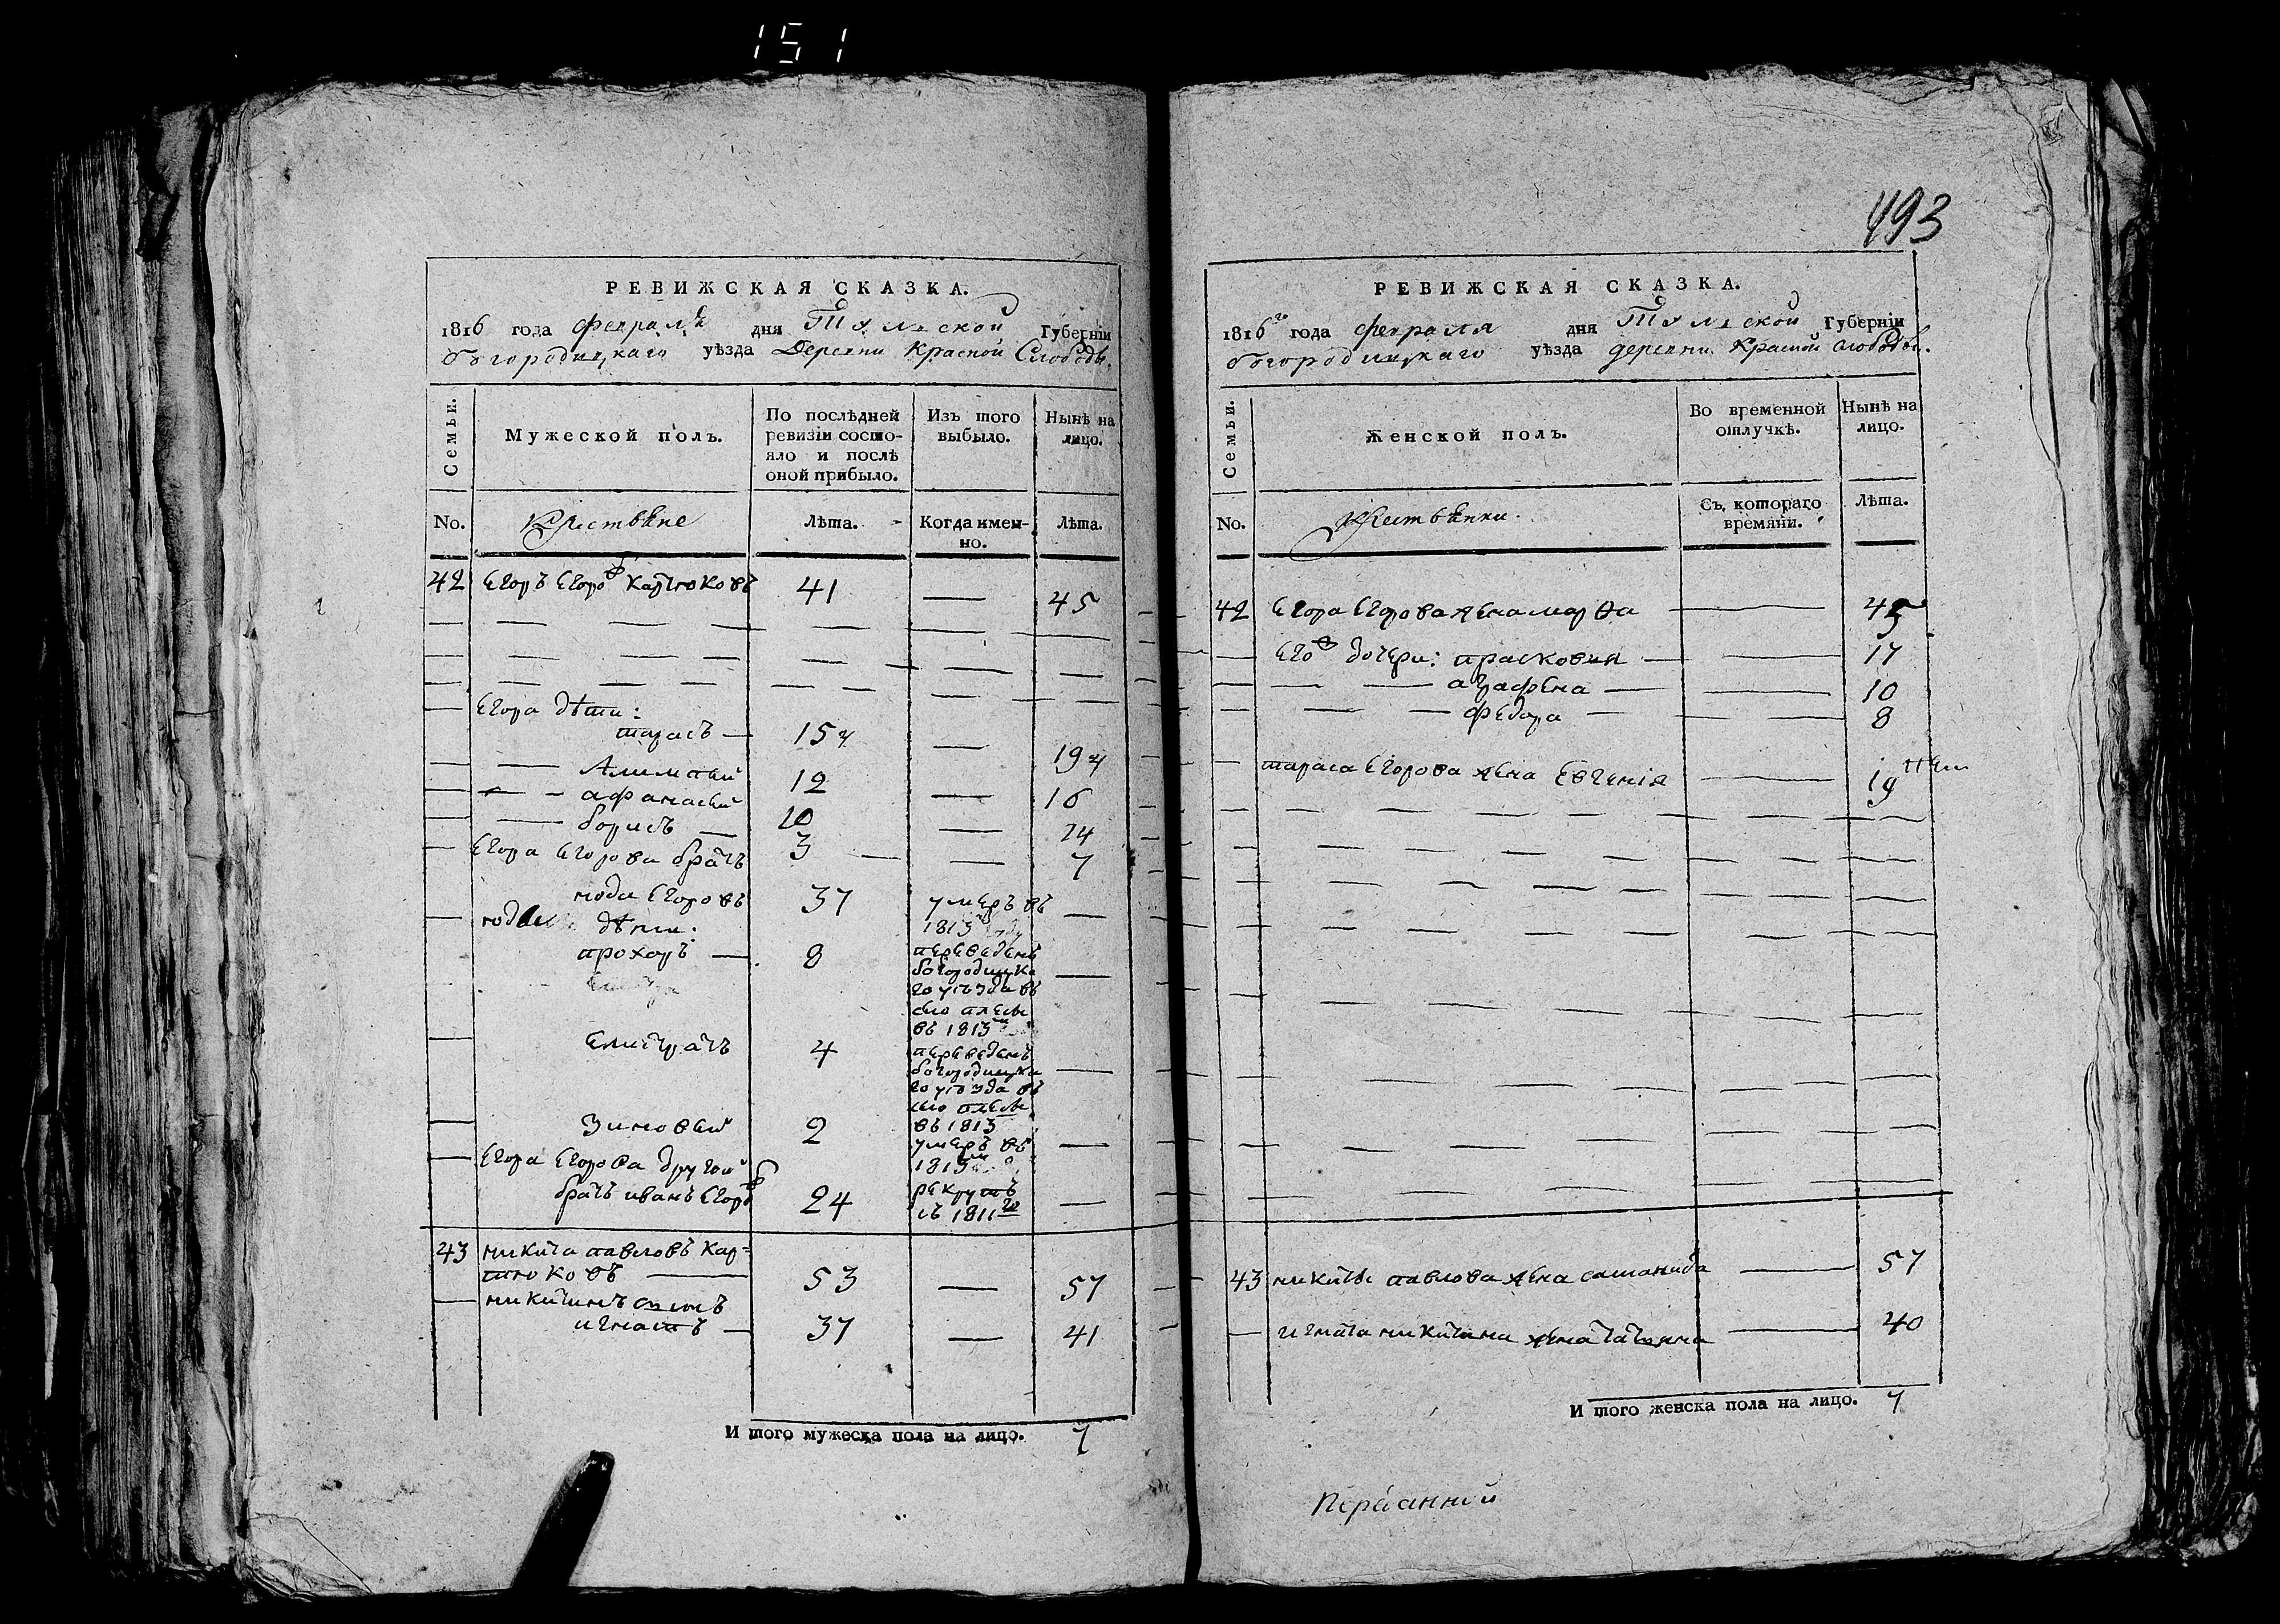 151
РЕВИЖСКАЯ СКАЗКА.
1816 года февраля дня Тульской Губерніи
богородицкаго уѣзда Деревни Красной Слободы.
Семьи.
Мужеской полъ.
По послѣдней ревизіи состо-
яло и послѣ
оной прибыло.
Изъ того
выбыло.
Нынѣ на
лицо.
No.
Крестьяне
Лѣта.
Когда имен-
но.
Лѣта.
42 Егоръ Егоровъ 41 — 45
Егора дѣти:
тарасъ — 15 — 19
Алимпей 12 — 16
афанасей 10 — 14
борисъ — 3 — 7
Егора Егорова братъ
Егоровъ 37 умеръ въ
1813
дѣти:
прохоръ — 8 переведенъ
богородицка
го уѣзда въ
село
въ 1813
Елистратъ 4 переведенъ
богородицка
го уѣзда въ
село
въ 1813
Зиновей 2 умеръ въ
1813
Егора Егорова другой
братъ иванъ Егоровъ 24 рекрутъ
съ 1811го
43 никита павловъ Кар=
тюковъ — 53 — 57
никитинъ сынъ
игнатъ — 37 — 41
И того мужеска пола на лицо. 7
493
РЕВИЖСКАЯ СКАЗКА.
1816го года февраля дня Тульской Губерніи
богородицкаго уѣзда деревни Красной слободы.
Семьи.
Женской полъ.
Во временной
отлучкѣ.
Нынѣ на
лицо.
No.
Крестьянки.
Съ котораго
времяни.
Лѣта.
42 Егора Егорова жена марѳа — 45
Его дочери: прасковья — 17
аграфена — 10
федора — 8
тараса Егорова жена Евгенія — 19
43 никиты павлова жена саламанида — 57
игната никитина жена татьяна — 40
И того женска пола на лицо. 7